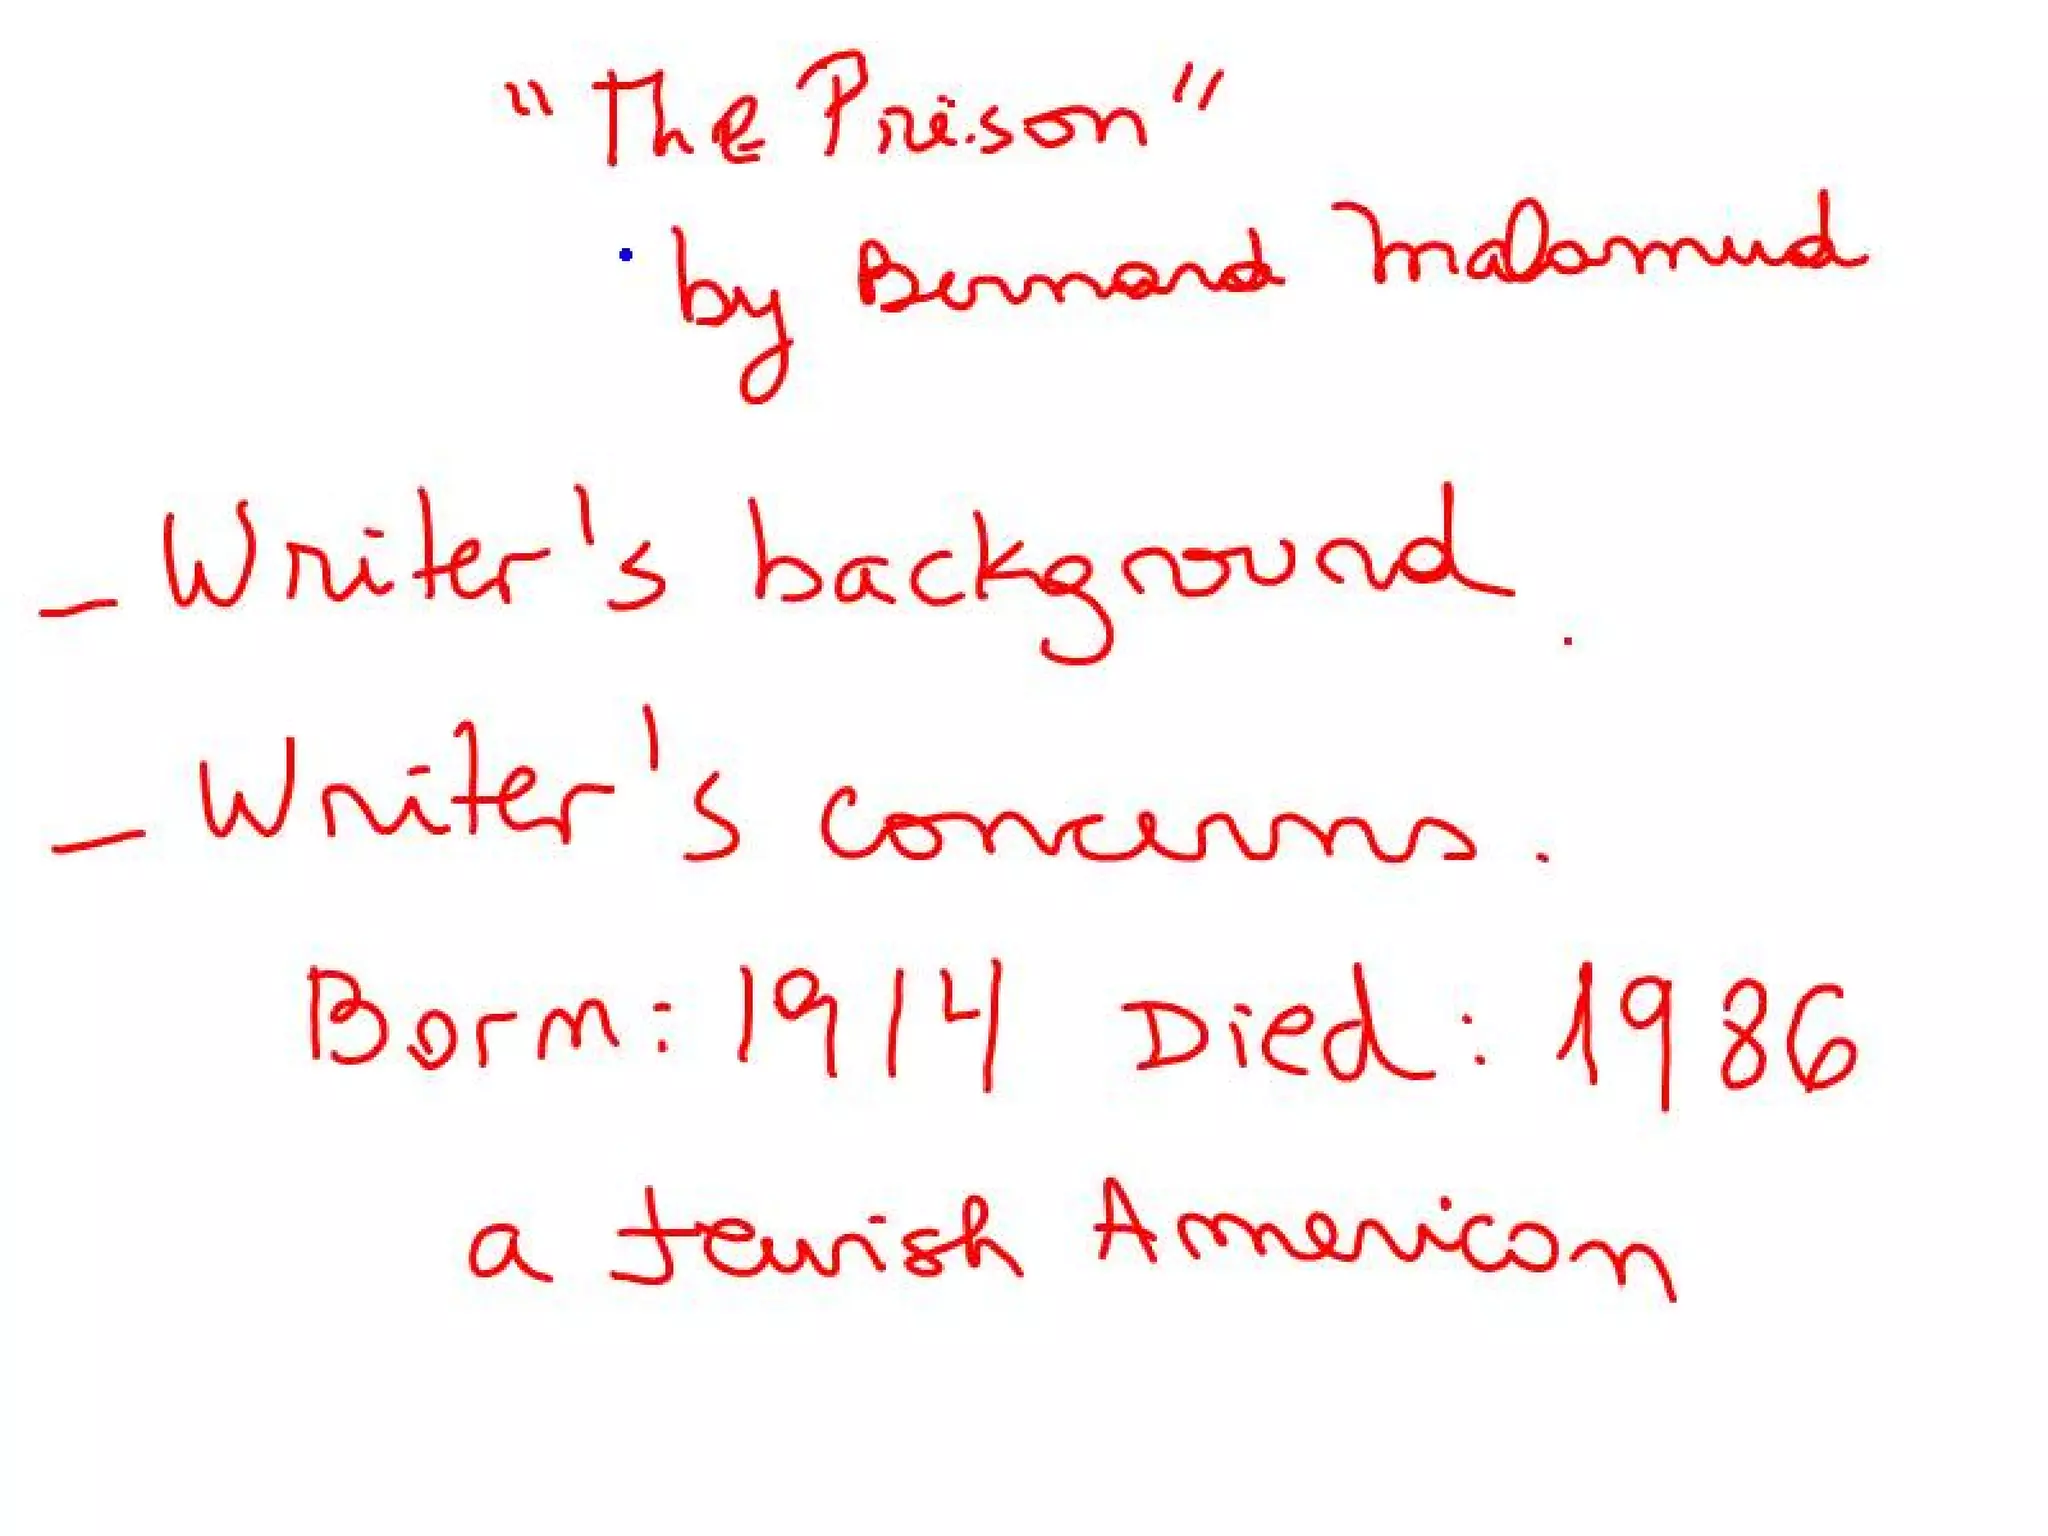 "The Prison"
by Bernard Malamud
- Writer's background.
- Writer's concerns.
Born: 1914 Died: 1986
a Jewish American